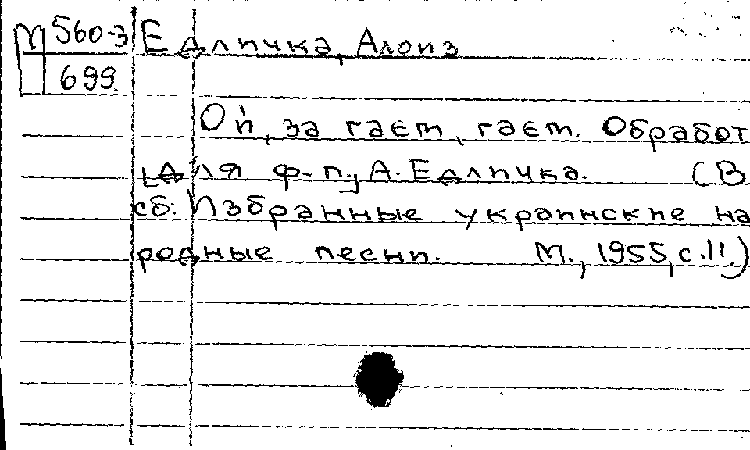 М 560-3
699
Едличка, Алоиз
Ой, за гаєм, гаєм. Обработ
[для ф-п., А. Едличка. (В
сб: Избранные украинские на
родные песни. М., 1955, с.11.)